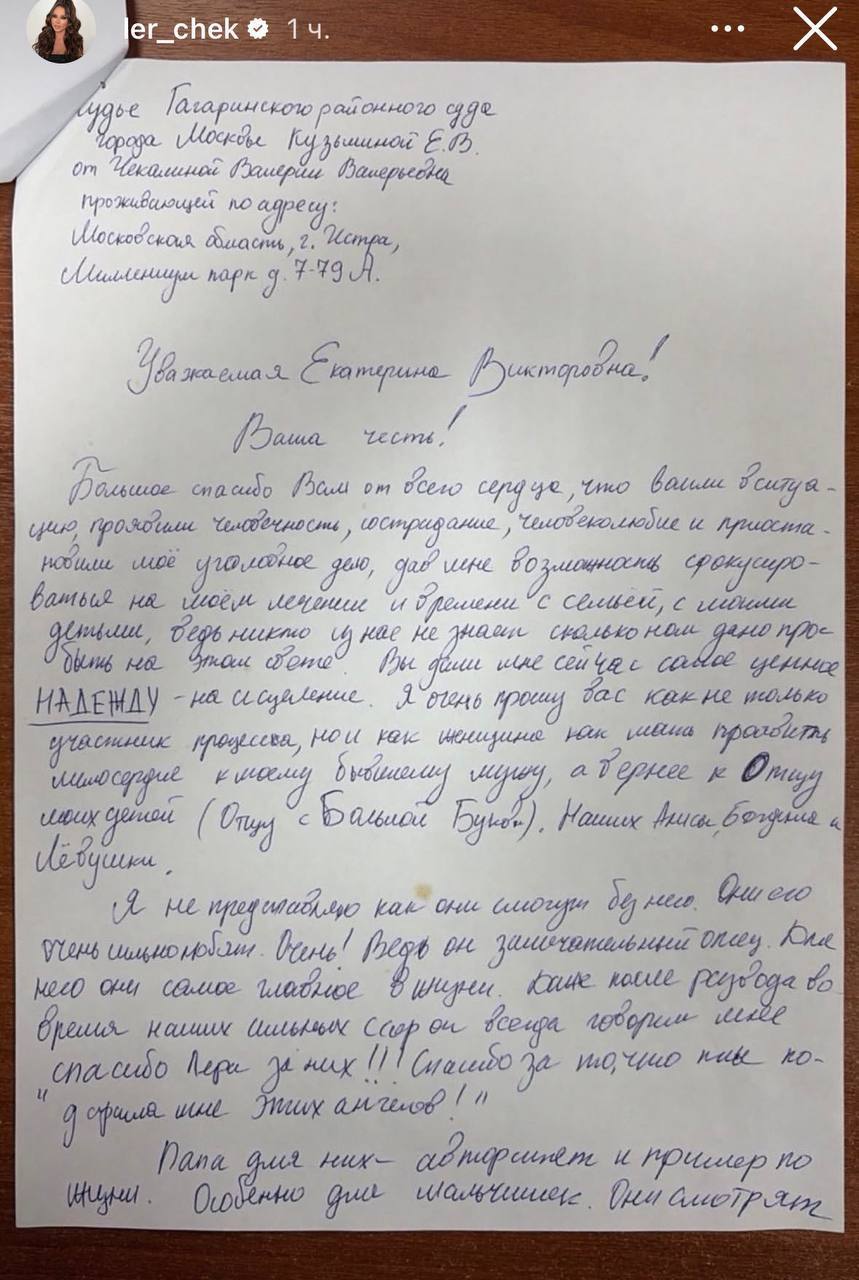 ler_chek 1 ч.
Судье Гагаринского районного суда
города Москвы Кузьминой Е.В.
от Чекалиной Валерии Валерьевна
проживающей по адресу:
Московская область, г. Истра,
Миллениум парк д. 7-79 А.
Уважаемая Екатерина Викторовна!
Ваша честь!
Большое спасибо Вам от всего сердца, что вошли в ситуа-
цию, проявили человечность, сострадание, человеколюбие и приоста-
новили моё уголовное дело, дав мне возможность сфокусиро-
ваться на моём лечении и времени с семьёй, с моими
детьми, ведь никто из нас не знает сколько нам дано про-
быть на этом свете. Вы дали мне сейчас самое ценное
НАДЕЖДУ - на исцеление. Я очень прошу вас как не только
участник процесса, но и как женщина как мать проявить
милосердие к моему бывшему мужу, а вернее к Отцу
моих детей (Отцу с Большой Буквы). Наших Алисы, Богдана и
Лёвушки.
Я не представляю как они смогут без него. Они его
очень сильно любят. Очень! Ведь он замечательный отец. Для
него они самое главное в жизни. Даже после развода во
время наших сильных ссор он всегда говорил мне
спасибо Лера за них!!! Спасибо за то, что ты по-
"дарила мне этих ангелов!"
Папа для них - авторитет и пример по
жизни. Особенно для мальчишек. Они смотрят